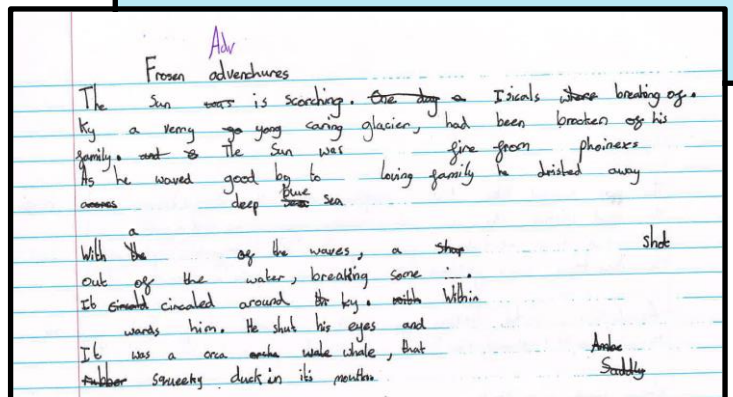 Adv
Frosen advenchures
The Sun was is scorching. One day a Isicals where breaking of.
Ky a verny go yong caring glacier, had been broaken of his
family. and The Sun was fire from phoinexs
As he waved good by to loving family he drished away
deep blue sea
a
With the of the waves, a shap shot
out of the water, breaking some
It circaled around ky. with Within
wards him. He shut his eyes and
It was a orca wale whale, that
rubber squeeky duck in its mouth. Saddly